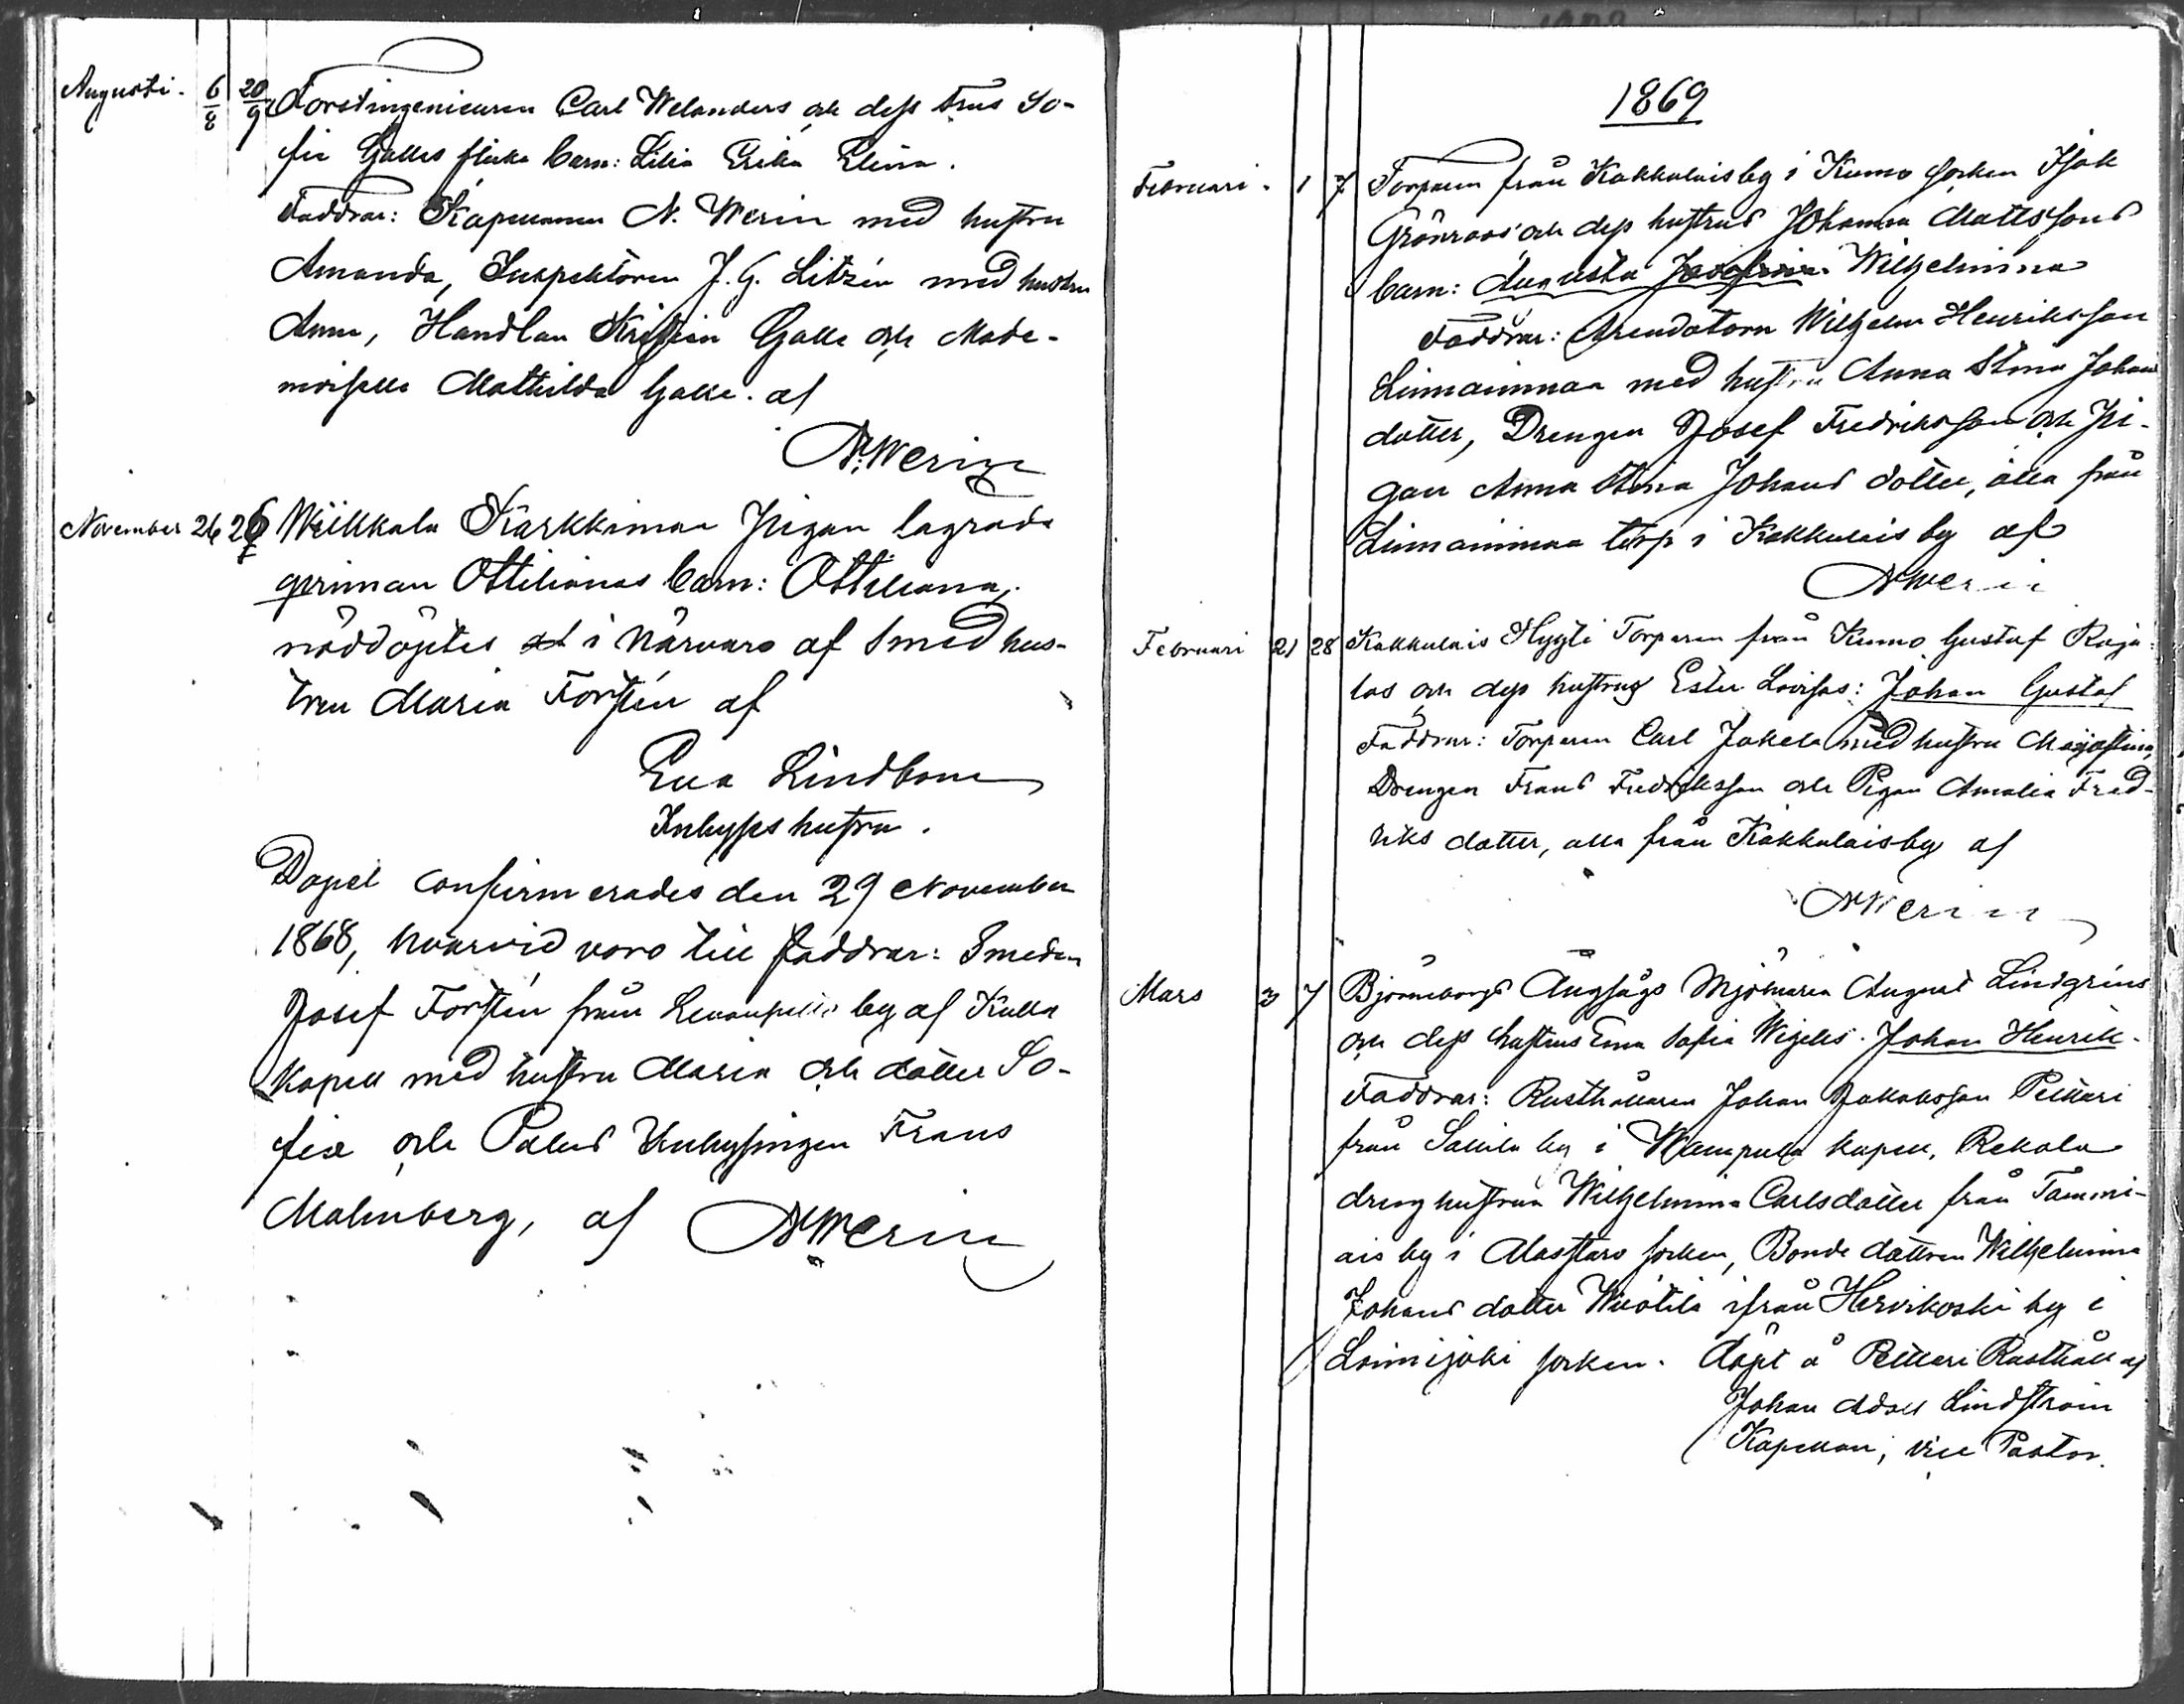 Augusti. 6/8 20/9 Forstingenieuren Carl Welanders och dess frus So-
fie Galles flicke barn: Lilia Erika Elina.
Faddrar: Kapellanen N. Werin med hustru
Amanda, Inspektoren J. G. Litzén med hustru
Anna, Handlan Kristian Galle och Made-
moiselle Mathilda Galle. af
N. Werin
November 26 26 Wiikkala Karkkimaa Pigan lagrada
qvinnan Ottilianas barn: Ottiliana,
nöddöptes i närvaro af Smed hus-
trun Maria Forstén af
Eva Lindbom
Inhyses hustru.
Dopet confirmerades den 29 November
1868, hvarvid voro till faddrar: Smeden
Josef Forstén från by af Kulla
Kapell med hustru Maria och dotter So-
fia och Palus Inhysingen Frans
Malmberg, af N Werin
1869
Februari. 1 7 Torparen från Kakkulais by i Kumo socken Isak
Grönroos och dess hustrus Johanna Mattssons
barn: Augusta Josefina Wilhelmina
Faddrar: Arendatorn Wilhelm Henriksson
Linnainmaa med hustru Anna Stina Johans
dotter, Drengen Josef Fredriksson och Pi-
gan Anna Stina Johans dotter, alla från
Linnainmaa torp i Kakkulais by af
N Werin
Februari 21 28 Kakkulais Hyyti Torparen från Kumo Gustaf Raja-
las och dess hustrus Ester Lovisas: Johan Gustaf
Faddrar: Torparen Carl Jakola med hustru Majastina,
Drengen Frans Fredriksson och Pigan Amalia Fred-
riks dotter, alla från Kakkulais by af
N Werin
Mars 3 7 Björneborgs Ångsågs Mjölnaren August Lindgréns
och dess hustrus Eva Sofia Wigelis. Johan Henrik.
Faddrar: Rusthållaren Johan Jakobsson Peltari
från Sallila by i Wampula kapell, Rekola
dreng hustrun Wilhelmina Carlsdotter från Tammi-
ais by i Alastaro socken, Bonde dottren Wilhelmina
Johans dotter ifrån Hirvikoski by i
Loimijoki socken. Döpt å Peltari Rusthåll af
Johan Adolf Lindström
Kapellan, vice Pastor.